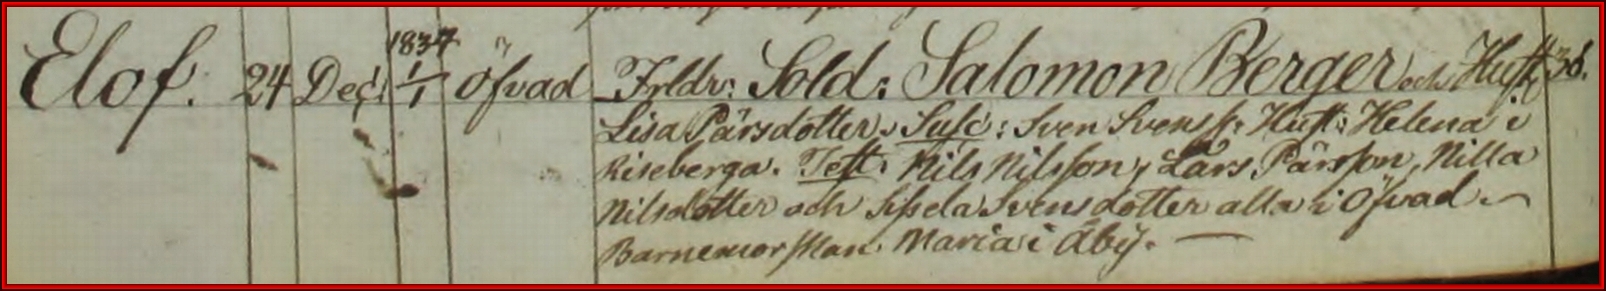 1837
Elof. 24 Dec: 1/1 Öfvad Frldr: Sold: Salomon Berger och Hust: 38.
Lisa Pärsdotter, Susc: Sven Svenss: Hust: Helena i
Riseberga. Test: Nils Nilsson, Lars Pärsson, Nilla
Nilsdotter och Sissela Svensdotter alla i Öfvad
Barnemorskan Maria i Åby.